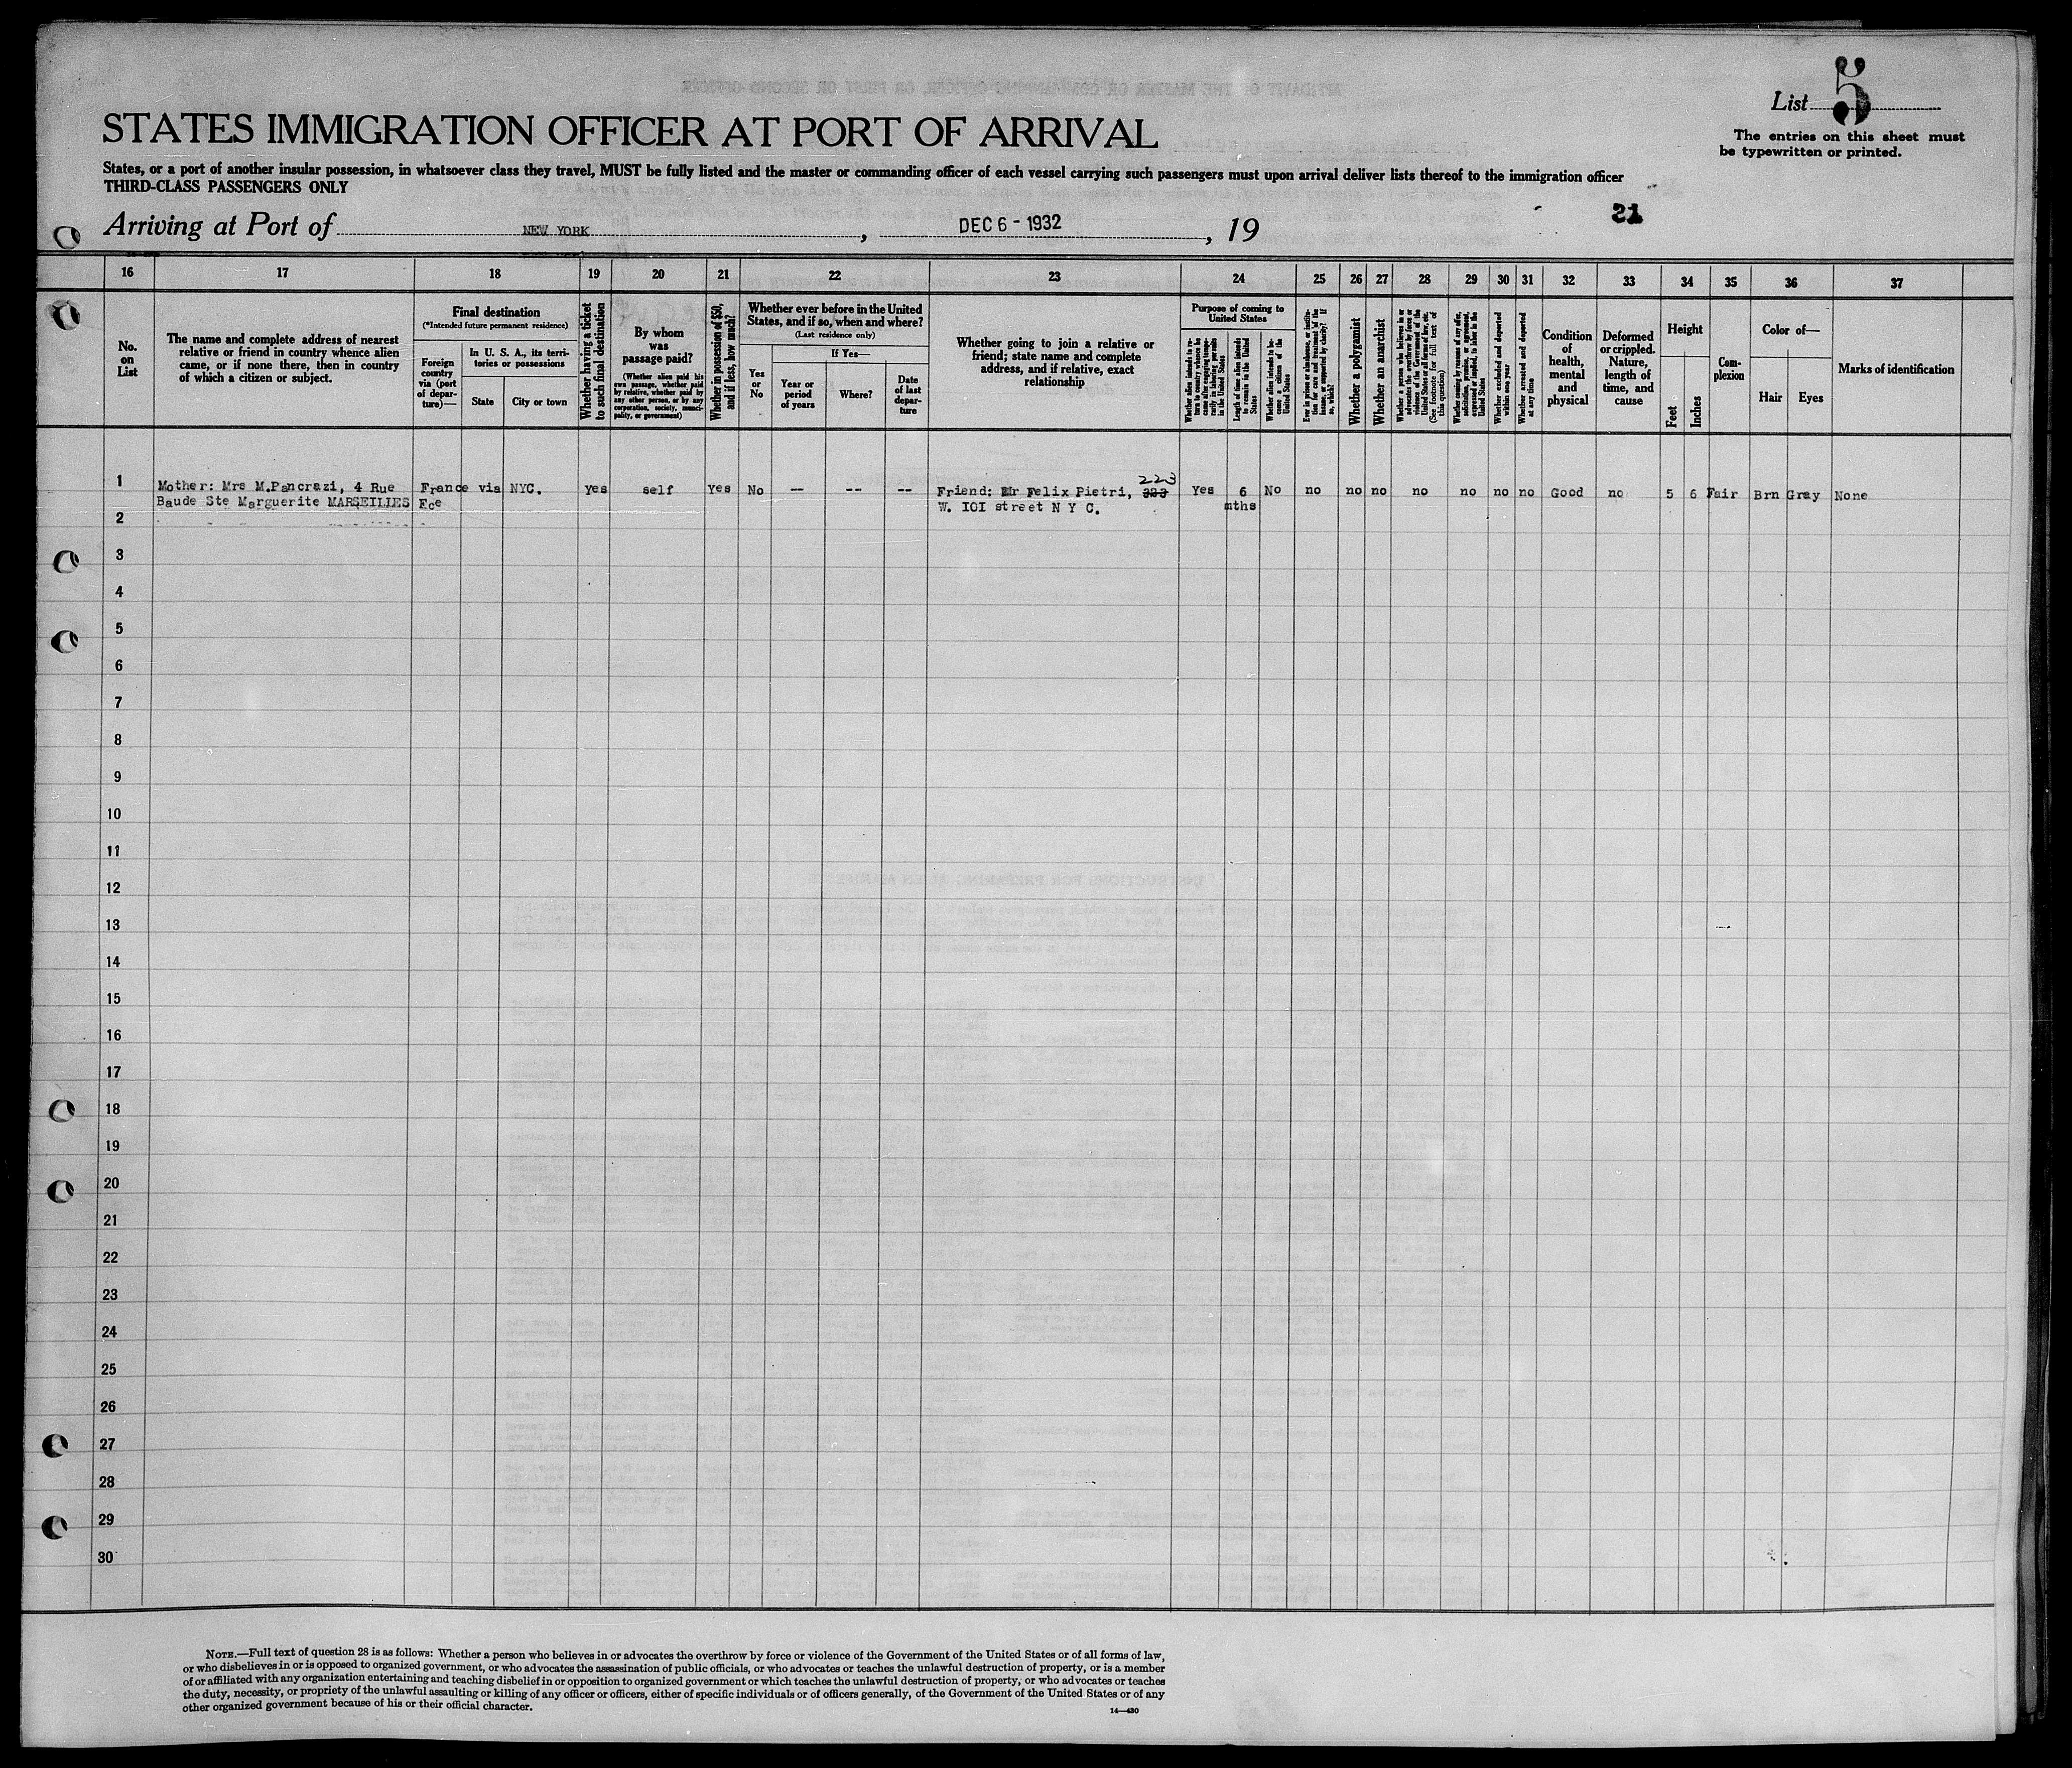 List 5
STATES IMMIGRATION OFFICER AT PORT OF ARRIVAL
The entries on this sheet must
be typewritten or printed.
States, or a port of another insular possession, in whatsoever class they travel, MUST be fully listed and the master or commanding officer of each vessel carrying such passengers must upon arrival deliver lists thereof to the immigration officer
THIRD-CLASS PASSENGERS ONLY
21
Arriving at Port of NEW YORK, DEC 6 - 1932, 19
16 17 18 19 20 21 22 23 24 25 26 27 28 29 30 31 32 33 34 35 36 37
No.
on
List
The name and complete address of nearest
relative or friend in country whence alien
came, or if none there, then in country
of which a citizen or subject.
Final destination
(*Intended future permanent residence)
Foreign
country
via (port
of depar-
ture)—
In U. S. A., its terri-
tories or possessions
State
City or town
Whether having a ticket
to such final destination
By whom
was
passage paid?
(Whether alien paid his
own passage, whether paid
by relative, whether paid by
any other person, or by any
corporation, society, munici-
pality, or government)
Whether in possession of $50,
and if less, how much?
Whether ever before in the United
States, and if so, when and where?
(Last residence only)
Yes
or
No
If Yes—
Year or
period
of years
Where?
Date
of last
depar-
ture
Whether going to join a relative or
friend; state name and complete
address, and if relative, exact
relationship
Purpose of coming to
United States
Whether alien intends to re-
turn to country whence he
came after engaging tempo-
rarily in laboring pursuits
in the United States
Length of time alien intends
to remain in the United
States
Whether alien intends to be-
come a citizen of the
United States
Ever in prison or almshouse, or institu-
tion for care and treatment of the
insane, or supported by charity? If
so, which?
Whether a polygamist
Whether an anarchist
Whether a person who believes in or
advocates the overthrow by force or
violence of the Government of the
United States or all forms of law, etc.
(See footnote for full text of
this question)
Whether coming by reason of any offer,
solicitation, promise, or agreement,
expressed or implied, to labor in the
United States
Whether excluded and deported
within one year
Whether arrested and deported
at any time
Condition
of
health,
mental
and
physical
Deformed
or crippled.
Nature,
length of
time, and
cause
Height
Feet
Inches
Com-
plexion
Color of—
Hair
Eyes
Marks of identification
223
1 Mother: Mrs M.Pancrazi, 4 Rue France via NYC. Yes self Yes No -- -- -- Friend: Mr Felix Pietri, 323 Yes 6 No no no no no no no no Good no 5 6 Fair Brn Gray None
Baude Ste Marguerite MARSEILLES Fce W. IOI street N Y C. mths
2
3
4
5
6
7
8
9
10
11
12
13
14
15
16
17
18
19
20
21
22
23
24
25
26
27
28
29
30
NOTE.—Full text of question 28 is as follows: Whether a person who believes in or advocates the overthrow by force or violence of the Government of the United States or of all forms of law,
or who disbelieves in or is opposed to organized government, or who advocates the assassination of public officials, or who advocates or teaches the unlawful destruction of property, or is a member
of or affiliated with any organization entertaining and teaching disbelief in or opposition to organized government or which teaches the unlawful destruction of property, or who advocates or teaches
the duty, necessity, or propriety of the unlawful assaulting or killing of any officer or officers, either of specific individuals or of officers generally, of the Government of the United States or of any
other organized government because of his or their official character.
14—430